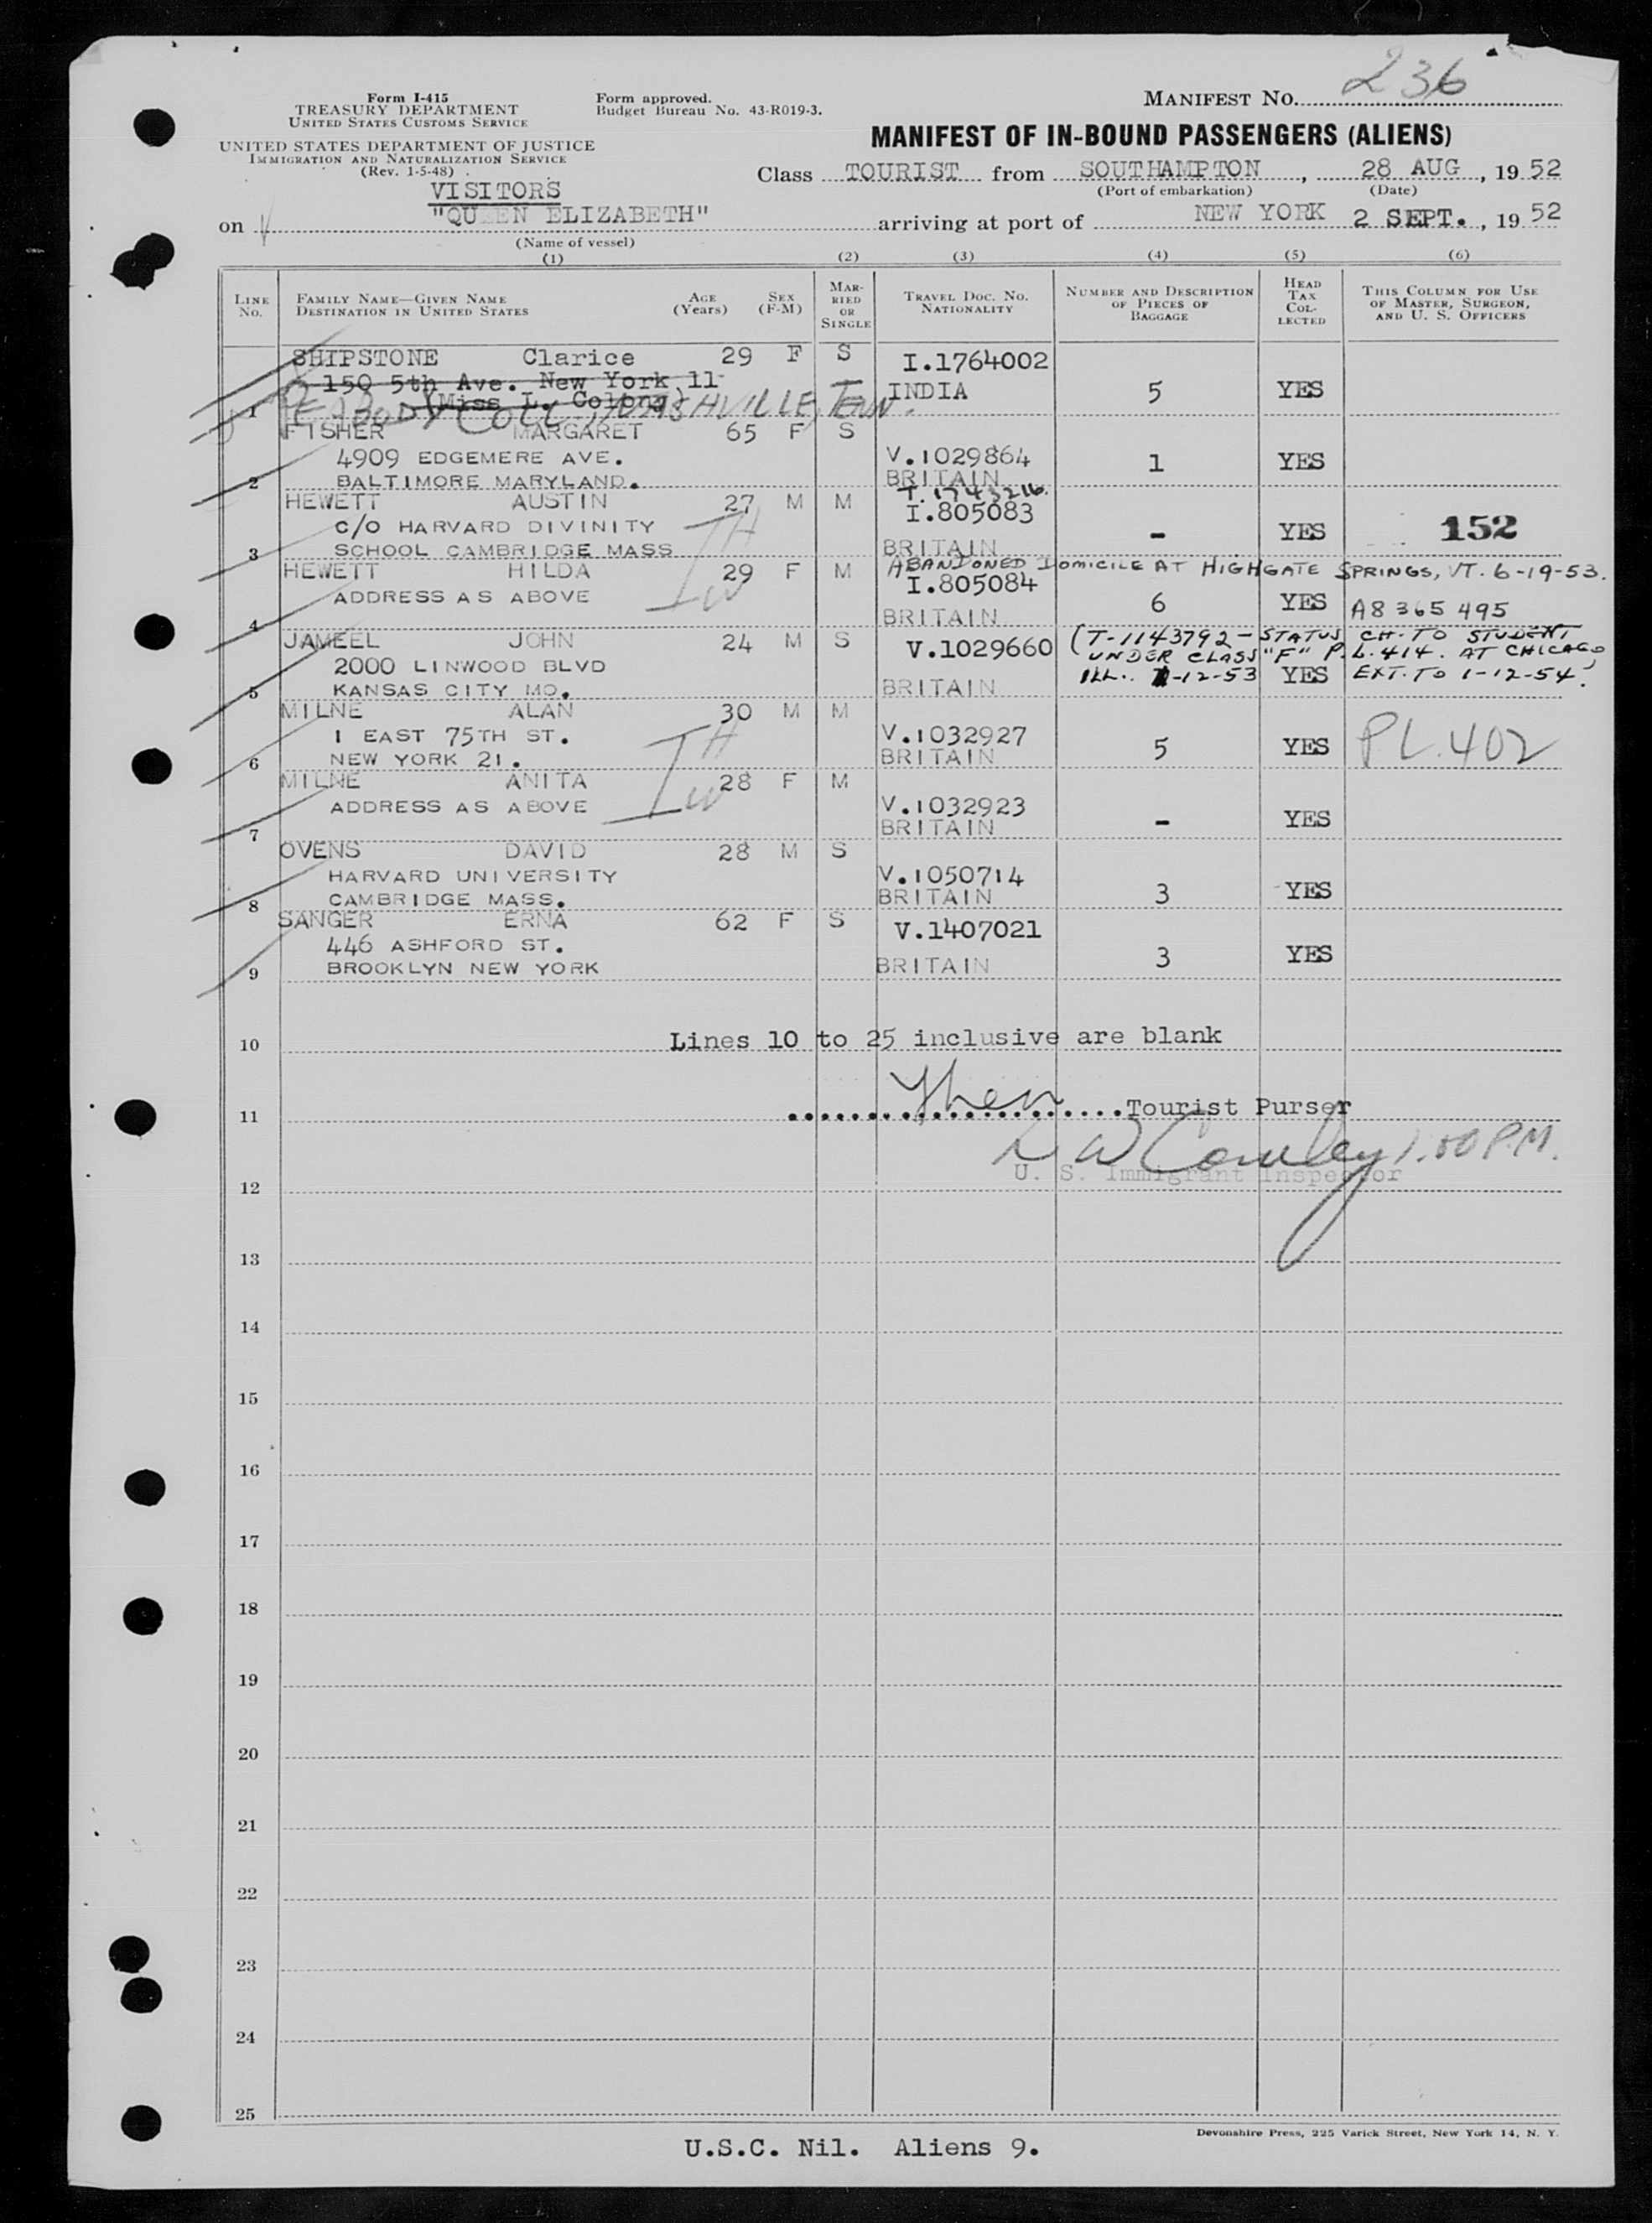 236
Form I-415
TREASURY DEPARTMENT
UNITED STATES CUSTOMS SERVICE
UNITED STATES DEPARTMENT OF JUSTICE
IMMIGRATION AND NATURALIZATION SERVICE
(Rev. 1-5-48)
Form approved.
Budget Bureau No. 43-R019-3.
MANIFEST No.
MANIFEST OF IN-BOUND PASSENGERS (ALIENS)
Class TOURIST from SOUTHAMPTON, 28 AUG, 19 52
(Port of embarkation) (Date)
VISITORS
on "QUEEN ELIZABETH" arriving at port of NEW YORK 2 SEPT., 19 52
(Name of vessel)
(1) (2) (3) (4) (5) (6)
LINE No. FAMILY NAME—GIVEN NAME DESTINATION IN UNITED STATES AGE (Years) SEX (F-M) MARRIED OR SINGLE TRAVEL DOC. NO. NATIONALITY NUMBER AND DESCRIPTION OF PIECES OF BAGGAGE HEAD TAX COLLECTED THIS COLUMN FOR USE OF MASTER, SURGEON, AND U. S. OFFICERS
SHIPSTONE Clarice 29 F S I.1764002
150 5th Ave. New York 11 INDIA 5 YES
(Miss L. Colony)
1 PEABODY COLL., NASHVILLE, TENN.
FISHER MARGARET 65 F S
4909 EDGEMERE AVE. V.1029864 1 YES
2 BALTIMORE MARYLAND. BRITAIN
T.1743216.
HEWETT AUSTIN 27 M M I.805083
C/O HARVARD DIVINITY - YES 152
3 SCHOOL CAMBRIDGE MASS BRITAIN
ABANDONED DOMICILE AT HIGHGATE SPRINGS, VT. 6-19-53.
HEWETT HILDA 29 F M I.805084
ADDRESS AS ABOVE 6 YES A8 365 495
4 BRITAIN
JAMEEL JOHN 24 M S V.1029660 (T-1143792 - STATUS CH. TO STUDENT
2000 LINWOOD BLVD UNDER CLASS "F" P.L. 414. AT CHICAGO
5 KANSAS CITY MO. BRITAIN ILL. 1-12-53 YES EXT. TO 1-12-54.)
MILNE ALAN 30 M M
1 EAST 75TH ST. V.1032927 5 YES PL.402
6 NEW YORK 21. BRITAIN
MILNE ANITA 28 F M
ADDRESS AS ABOVE V.1032923 - YES
7 BRITAIN
OVENS DAVID 28 M S
HARVARD UNIVERSITY V.1050714
8 CAMBRIDGE MASS. BRITAIN 3 YES
SANGER ERNA 62 F S V.1407021
446 ASHFORD ST. 3 YES
9 BROOKLYN NEW YORK BRITAIN
10 Lines 10 to 25 inclusive are blank
11 Tourist Purser
1:00 P.M.
12 U. S. Immigrant Inspector
13
14
15
16
17
18
19
20
21
22
23
24
25
Devonshire Press, 225 Varick Street, New York 14, N. Y.
U.S.C. Nil. Aliens 9.